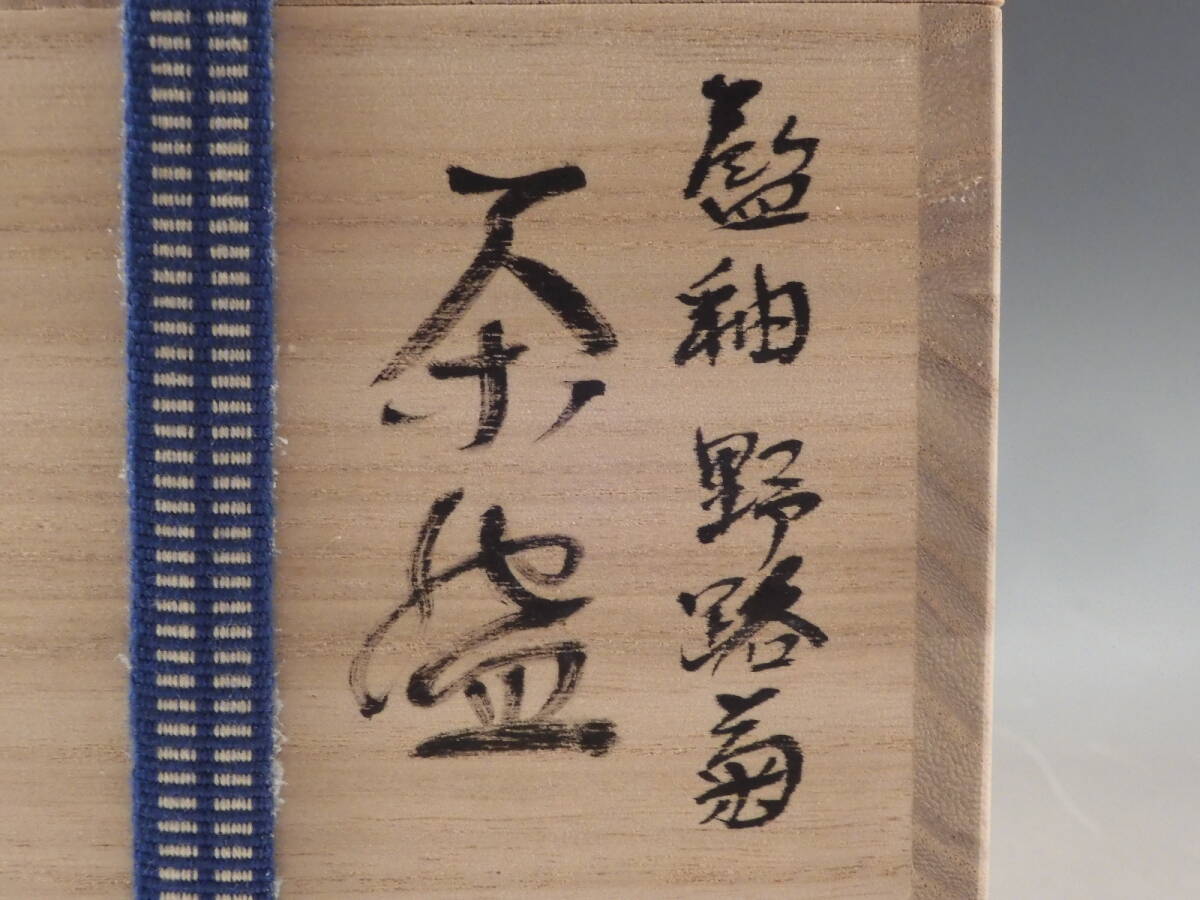 藍釉 野路菊
茶盌